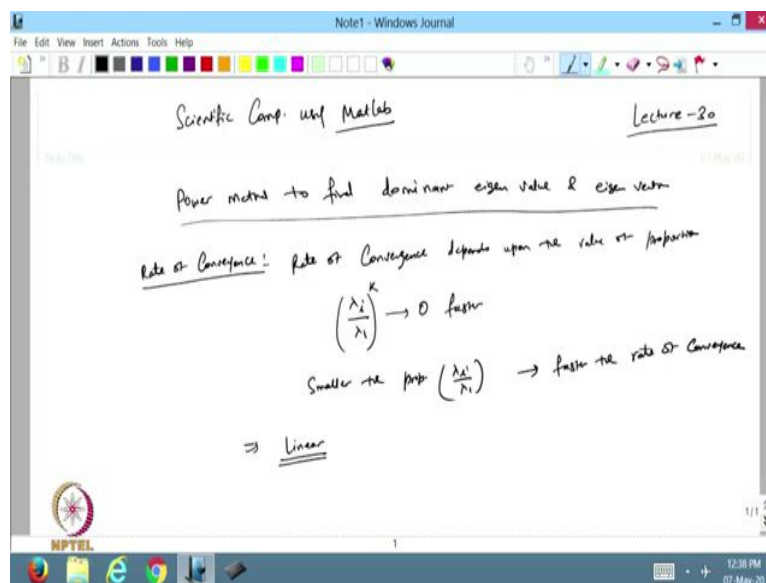 Note1 - Windows Journal
File Edit View Insert Actions Tools Help
B I
Scientific Comp. using Matlab
Lecture-30
Power method to find dominant eigen value & eigen vector
Rate of Convergence: Rate of Convergence depends upon the value of proportion
(λi/λ1)^K → 0 faster
Smaller the prop. (λi/λ1) → faster the rate of Convergence
⇒ Linear
NPTEL
1/1
1
12:38 PM
07-May-20